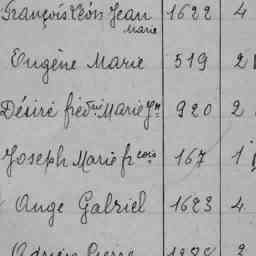 François Léon Jean Marie 1622 4
Eugène Marie 519 2
Désiré fréd^ric Marie J^n 920 2
Joseph Marie fr^çois 167 1
Ange Gabriel 1623 4
Adrien Pierre